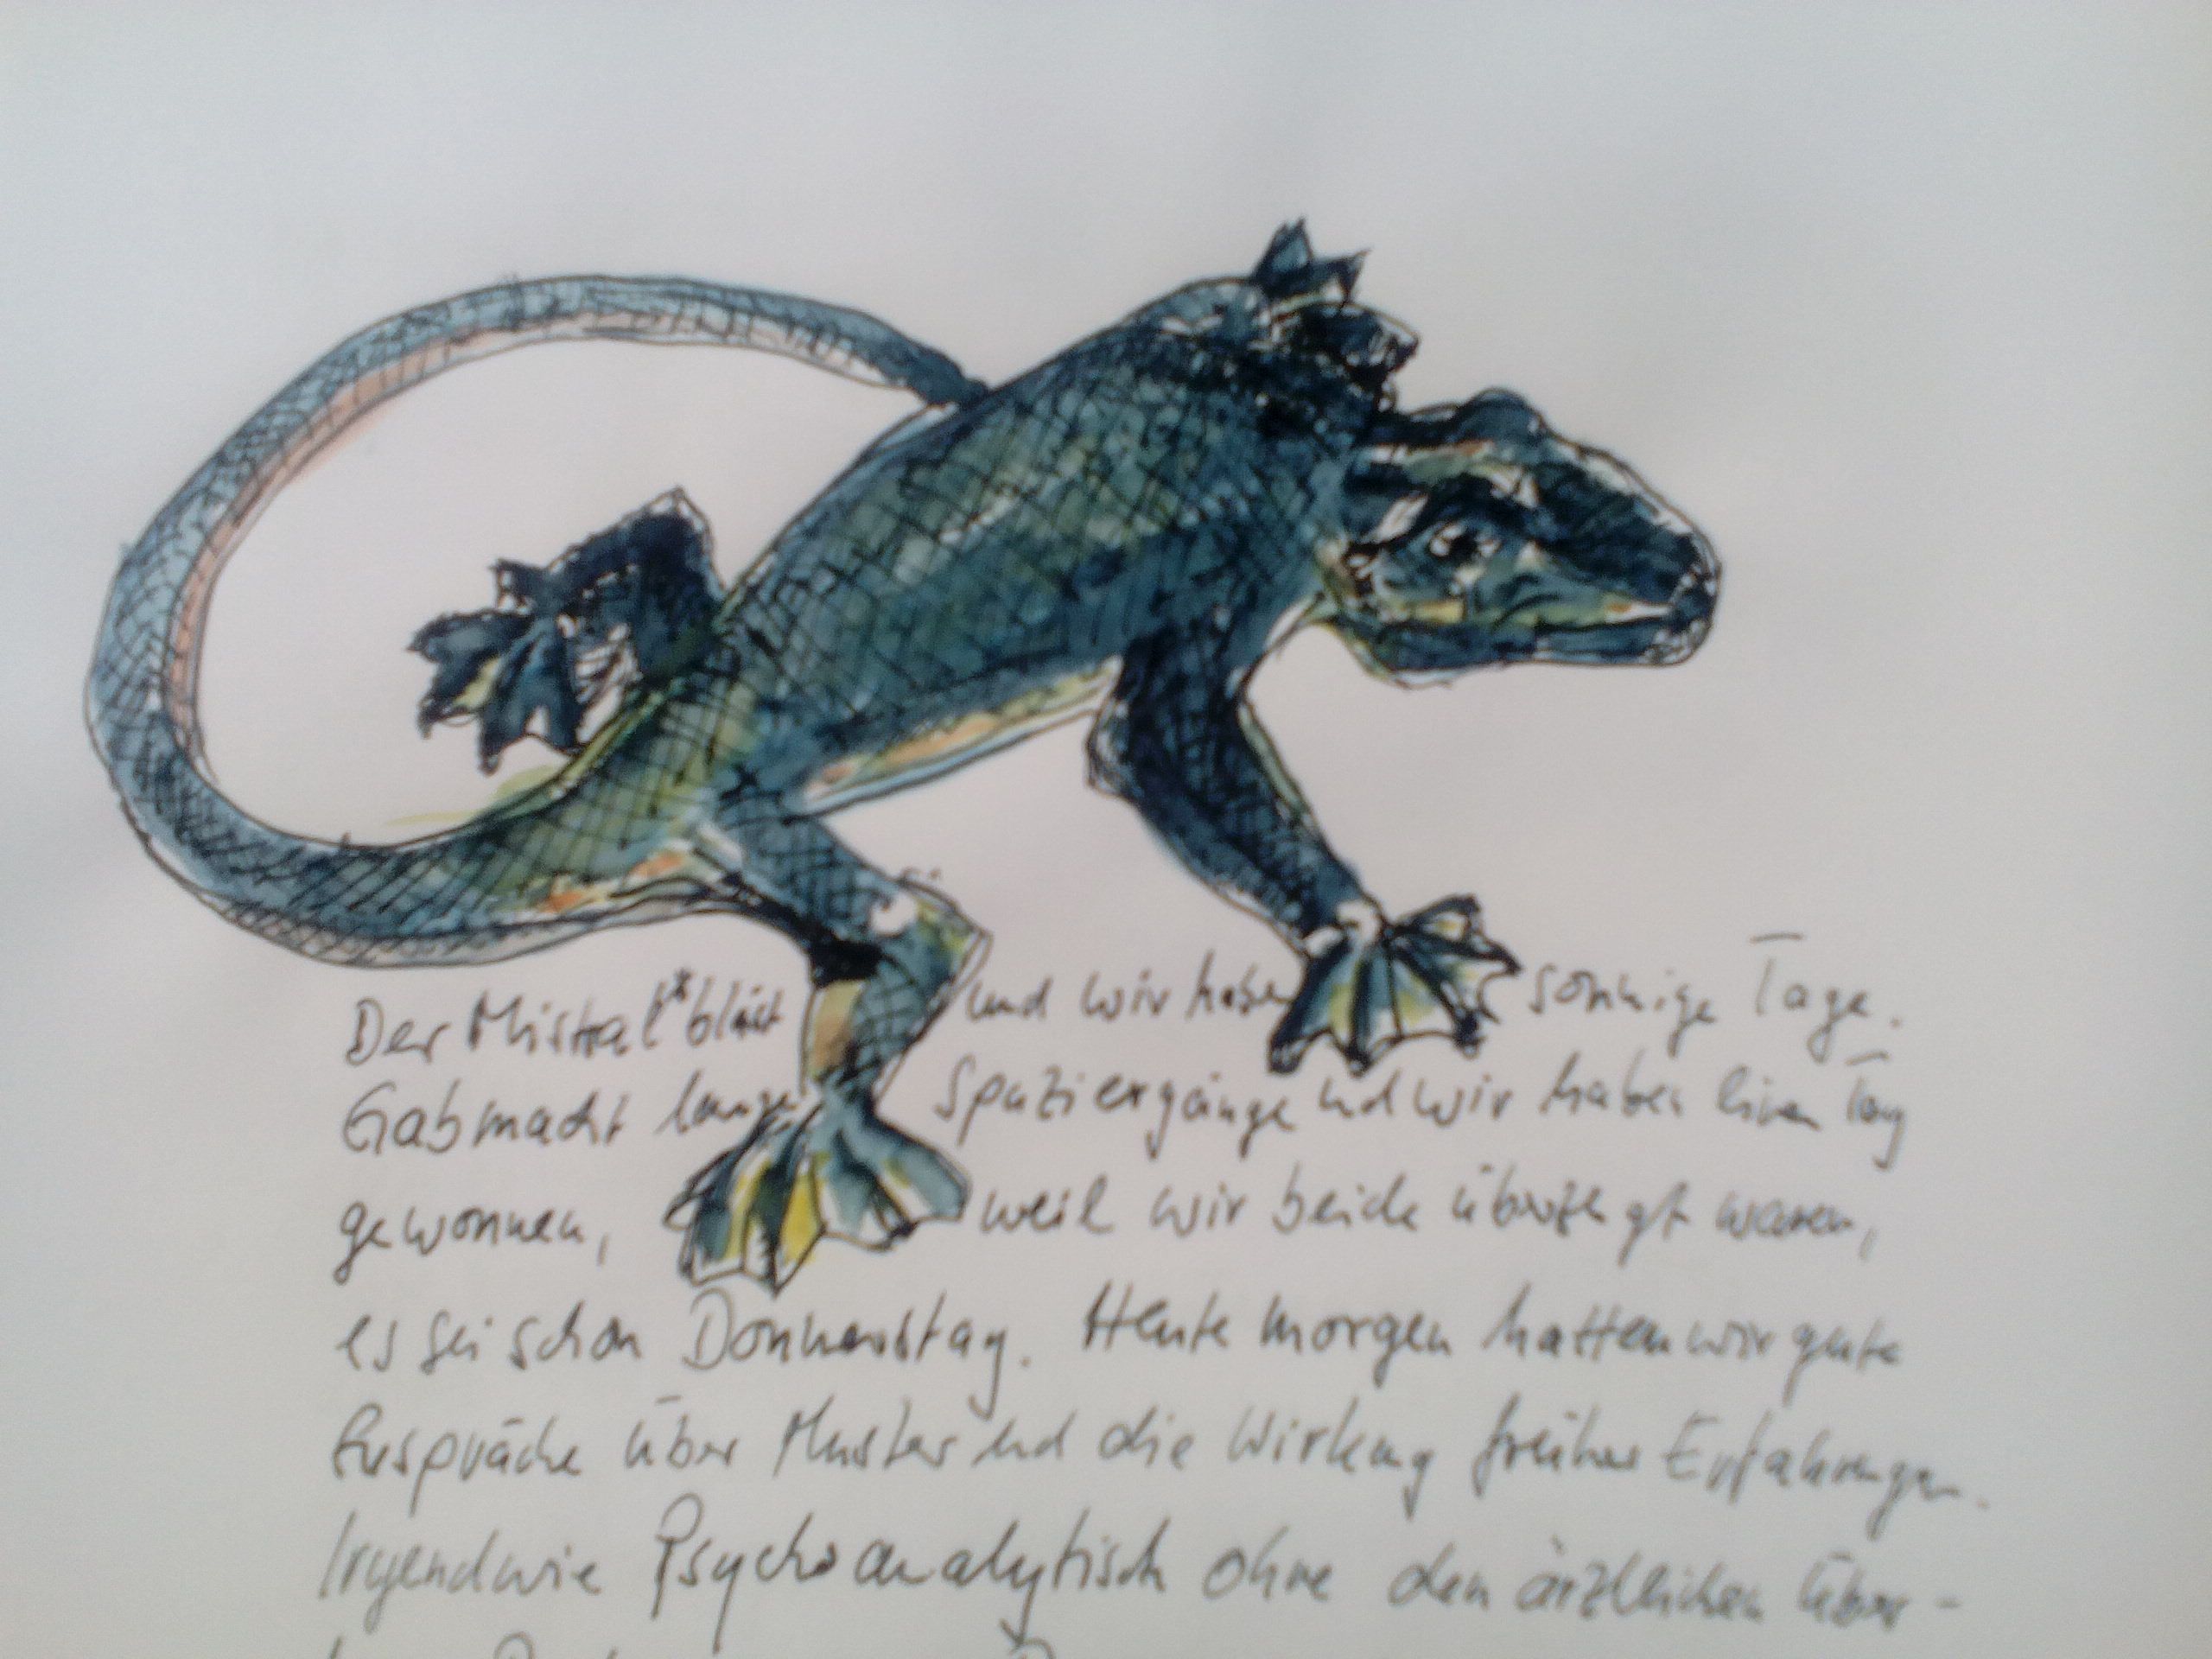 Der Mistral* bläst und wir haben sonnige Tage.
Gab macht lange Spaziergänge und wir haben einen Tag
gewonnen, weil wir beide überzeugt waren,
es sei schon Donnerstag. Heute morgen hatten wir gute
Gespräche über Muster und die Wirkung früher Erfahrungen.
Irgendwie Psychoanalytisch ohne den ärztlichen Über-